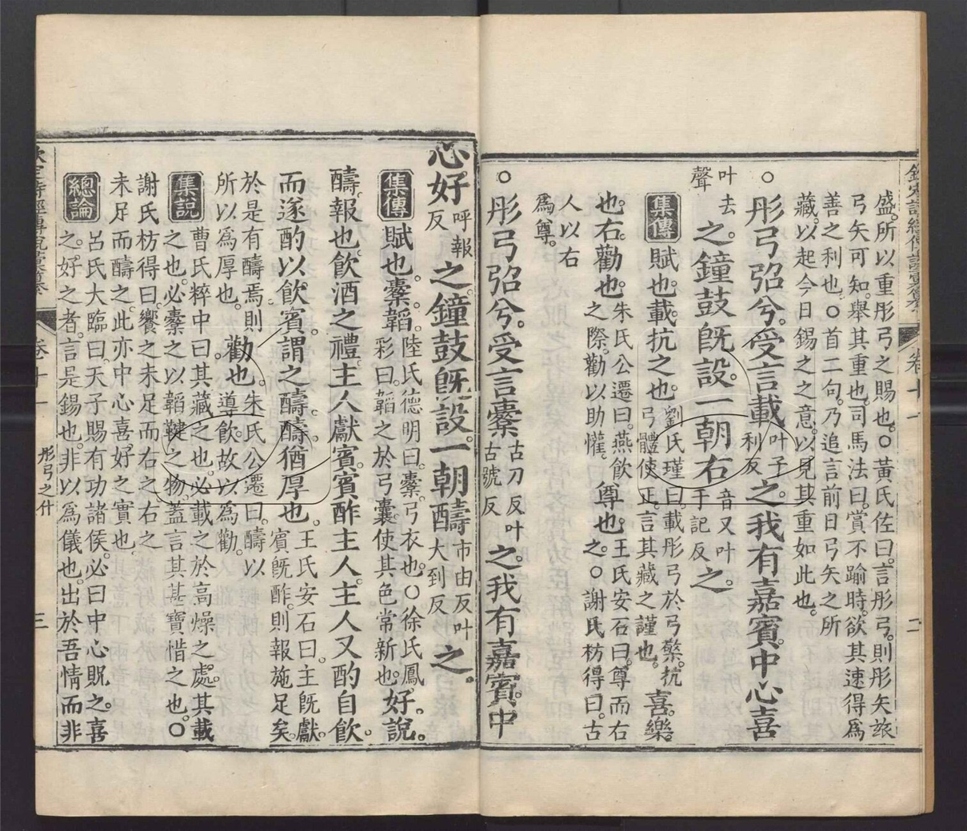 盛所以重彤弓之賜也○黃氏佐曰言彤弓則彤矢旅
弓矢可知舉其重也司馬法曰賞不踰時欲其速得爲
善之利也○首二句乃追言前日弓矢之所
藏以起今日錫之之意以見其重如此也
○彤弓弨兮受言載叶子利反之我有嘉賓中心喜
叶去聲之鐘鼓旣設一朝右音又叶于記反之
集傳賦也載抗之也劉氏瑾曰載彤弓於弓檠抗弓體使正言其藏之謹也喜樂
也右勸也朱氏公遷曰燕飲之際勸以助懽尊也王氏安石曰尊而右之○謝氏枋得曰古
人以右爲尊
○彤弓弨兮受言櫜古刀反叶古號反之我有嘉賓中
心好呼報反之鐘鼓旣設一朝醻市由反叶大到反之
集傳賦也櫜韜陸氏德明曰櫜弓衣也○徐氏鳳彩曰韜之於弓囊使其色常新也好說
醻報也飮酒之禮主人獻賓賓酢主人主人又酌自飮
而遂酌以飮賓謂之醻醻猶厚也王氏安石曰主旣獻賓旣酢則報施足矣
於是有醻焉則所以爲厚也勸也朱氏公遷曰醻以導飮故以爲勸
集說曹氏粹中曰其藏之也必載之於高燥之處其載
之也必櫜之以韜韔之物蓋言其甚寶惜之也○
謝氏枋得曰饗之未足而右之右之
未足而醻之此亦中心喜好之實也
總論呂氏大臨曰天子賜有功諸侯必曰中心貺之喜
之好之者言是錫也非以爲儀也出於吾情而非
卷十一
彤弓之什
三